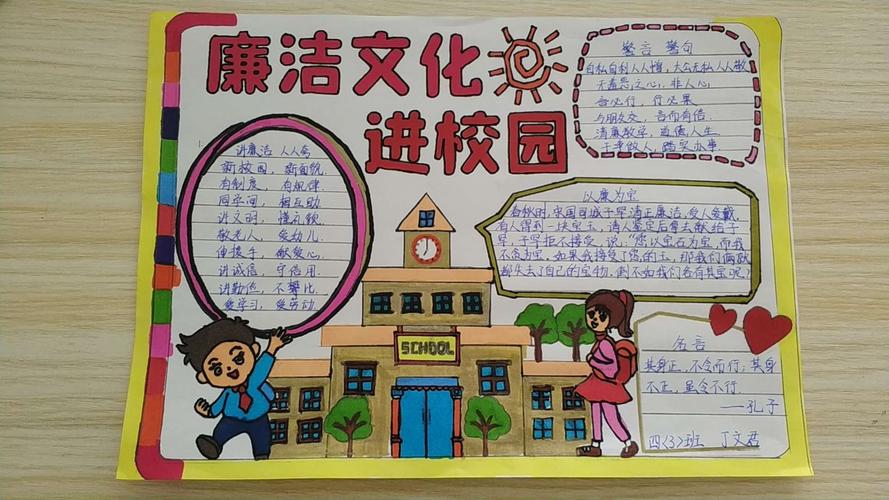 廉洁文化
进校园
警言 警句
自私自利人人憎，大公无私人人敬
无羞恶之心，非人心
言必行，行必果
与朋友交，言而有信
清廉教学，道德人生
干事做人，踏实办事
讲廉洁 人人夸
新校园，新面貌
有制度，有规律
同学间，相互助
讲文明，懂礼貌
敬老人，爱幼儿
伸援手，献爱心
讲诚信，守信用
讲勤俭，不攀比
爱学习，爱劳动
以廉为宝
春秋时，宋国司城子罕清正廉洁，受人爱戴。
有人得到一块宝玉，请人鉴定后拿去献给子
罕，子罕拒不接受，说：“您以宝石为宝，而我
不贪为宝。如果我接受了您的玉，那我们俩就
都失去了自己的宝物，倒不如我们各有其宝呢？
SCHOOL
名言
其身正，不令而行；其身
不正，虽令不行
——孔子
四(3)班 丁文君